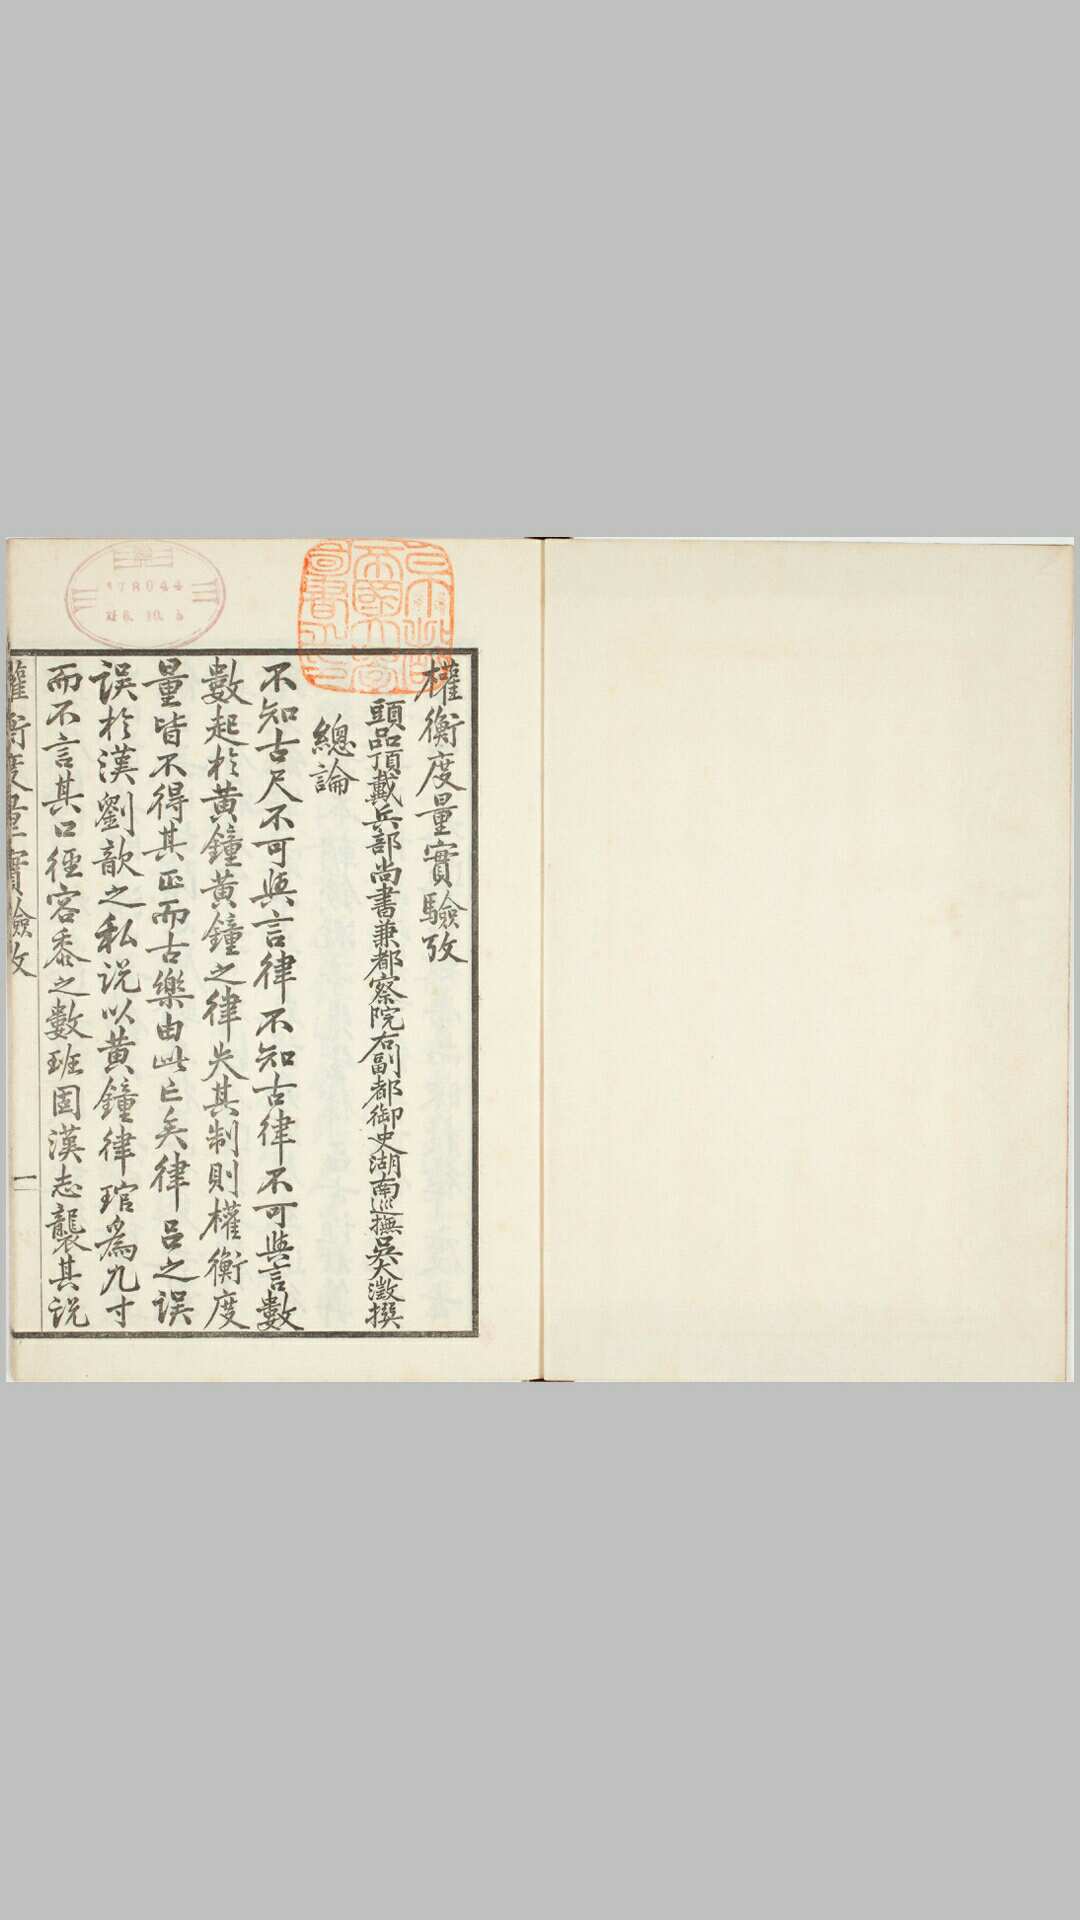 權衡度量實驗攷
頭品頂戴兵部尚書兼都察院右副都御史湖南巡撫吳大澂撰
總論
不知古尺不可與言律不知古律不可與言數
數起於黃鐘黃鐘之律失其制則權衡度
量皆不得其正而古樂由此亡矣律呂之誤
誤於漢劉歆之私說以黃鐘律琯為九寸
而不言其口徑容黍之數班固漢志襲其說
權衡度量實驗攷
一